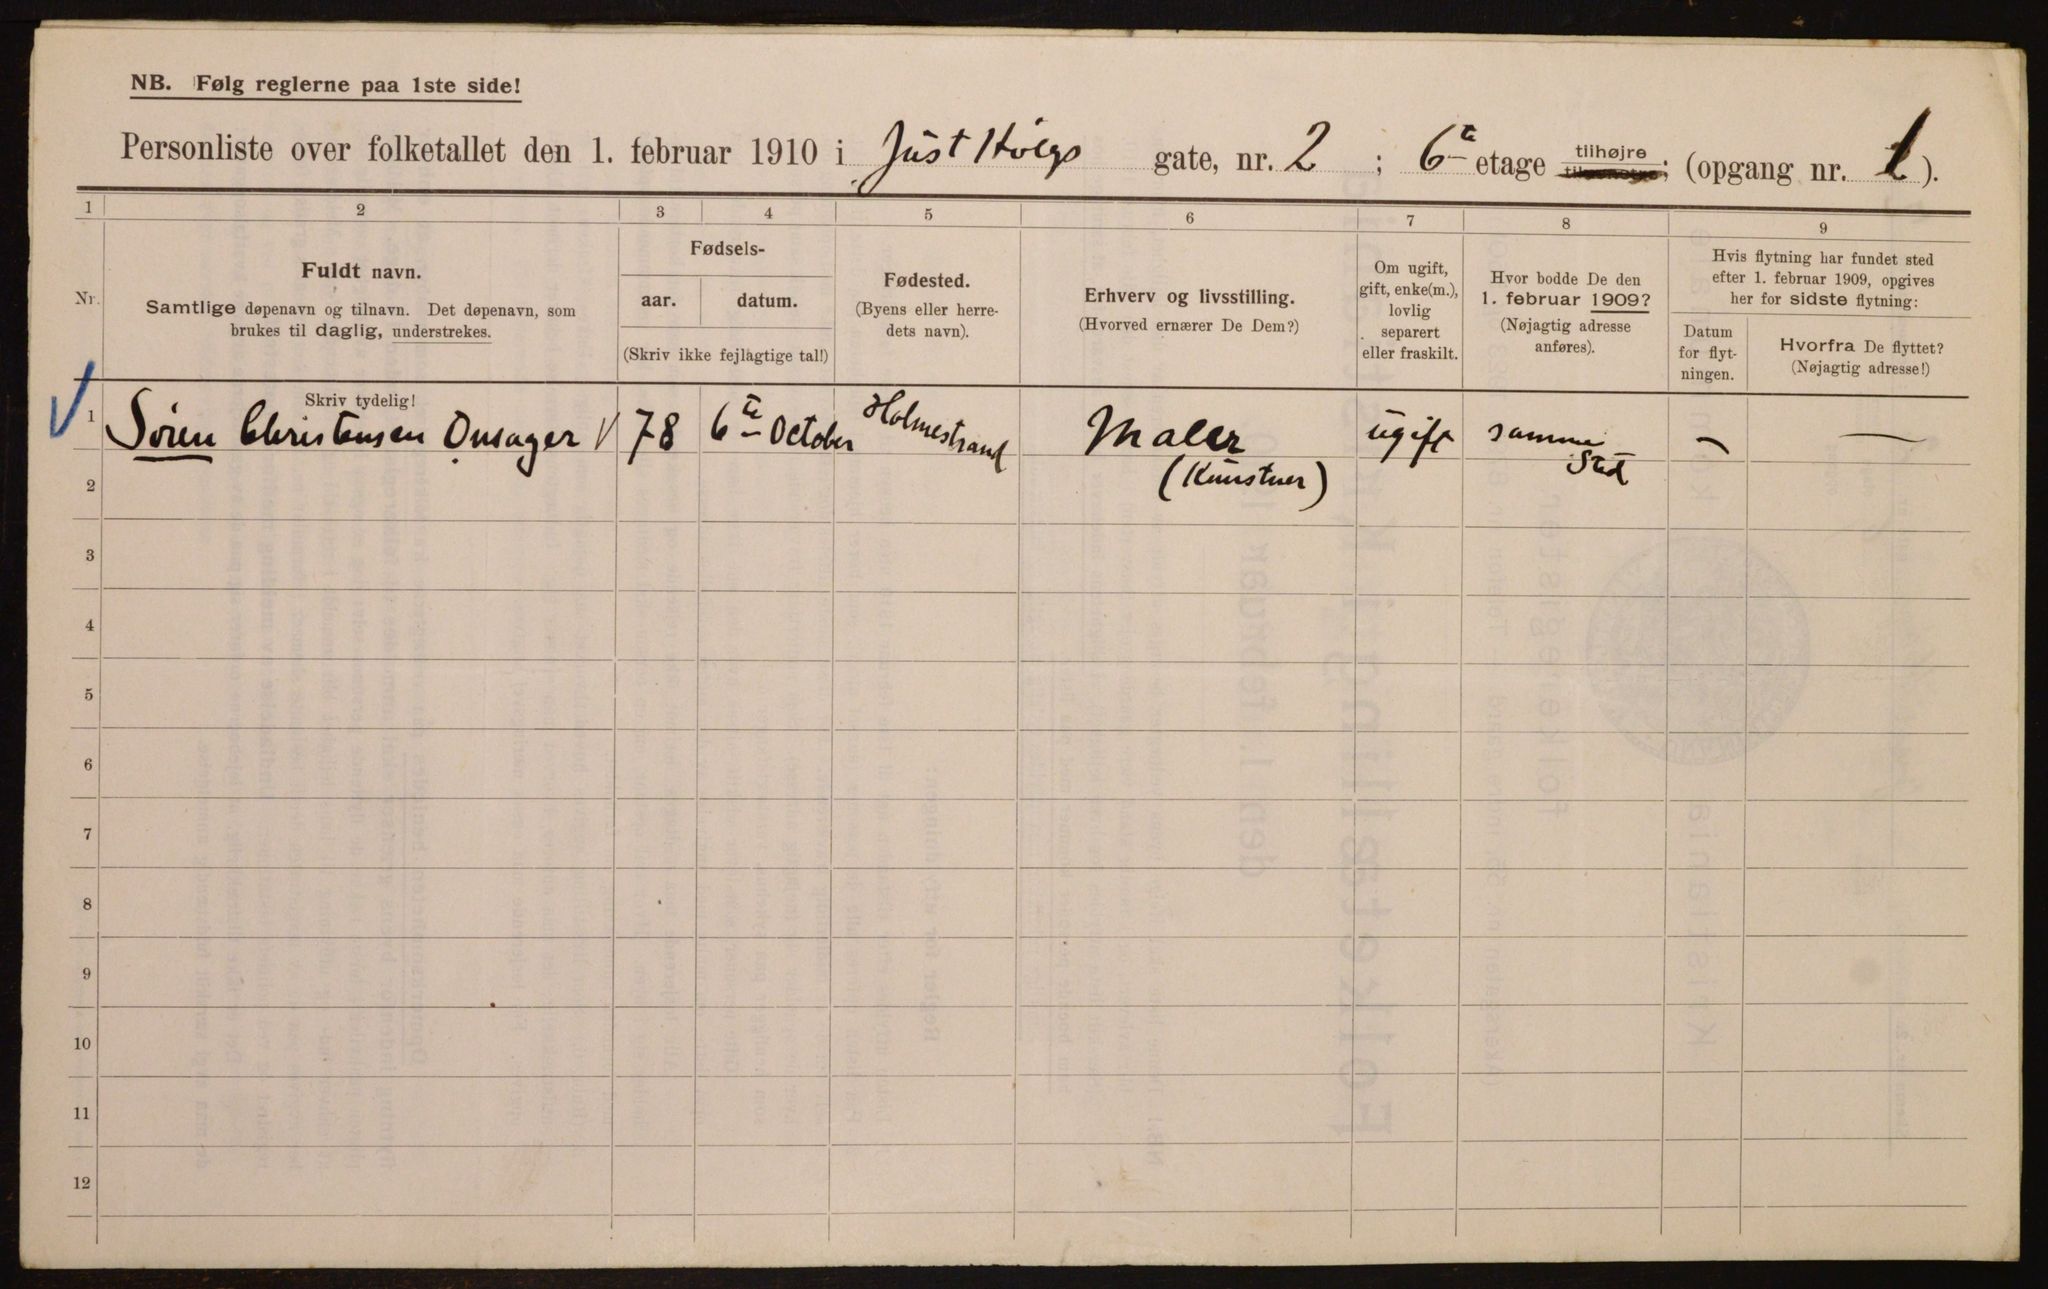 NB. Følg reglerne paa 1ste side!
Personliste over folketallet den 1. februar 1910 i Just Høegs gate, nr. 2 ; 6te etage tilhøjre tilvenstre; (opgang nr. 1).
1 2 3 4 5 6 7 8 9
Nr.
Fuldt navn.
Samtlige døpenavn og tilnavn. Det døpenavn, som
brukes til daglig, understrekes.
Fødsels-
aar. datum.
(Skriv ikke fejlagtige tal!)
Fødested.
(Byens eller herre-
dets navn).
Erhverv og livsstilling.
(Hvorved ernærer De Dem?)
Om ugift,
gift, enke(m.),
lovlig
separert
eller fraskilt.
Hvor bodde De den
1. februar 1909?
(Nøjagtig adresse
anføres).
Hvis flytning har fundet sted
efter 1. februar 1909, opgives
her for sidste flytning:
Datum
for flyt-
ningen.
Hvorfra De flyttet?
(Nøjagtig adresse!)
Skriv tydelig!
1 Søren Christensen Onsager 78 6te October Holmestrand Maler ugift samme
(Kunstner) Sted
2
3
4
5
6
7
8
9
10
11
12